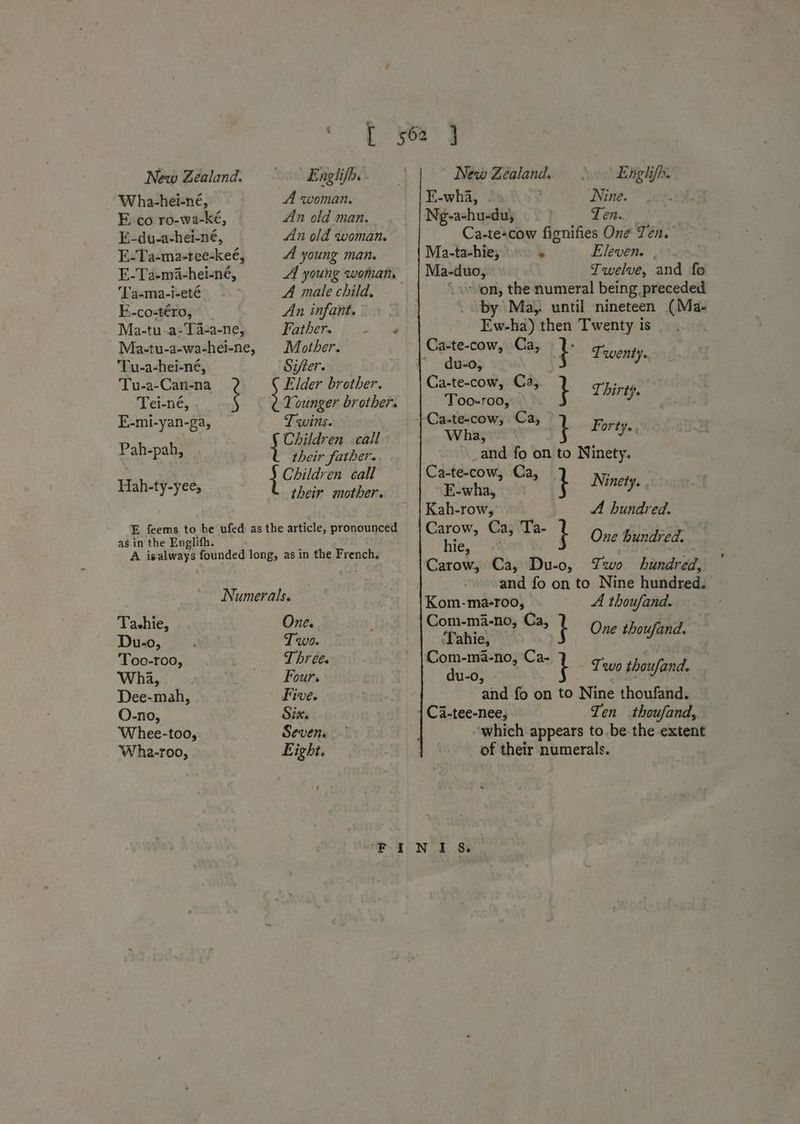 [ 562 ]
New Zealand. Engliſh.
Wha-hei-né, A woman.
E co ro-wa-ké, An old man.
E-du-a-hei-né, An old woman.
E-Ta-ma-ree-keé, A young man.
E-Ta-mā-hei-né, A young woman.
Ta-ma-i-eté A male child.
E-co-téro, An infant.
Ma-tu-a-Tā-a-ne, Father.
Ma-tu-a-wa-hei-ne, Mother.
Tu-a-hei-né, Siſter.
Tu-a-Can-na } { Elder brother.
Tei-né, } { Younger brother.
E-mi-yan-ga, Twins.
Pah-pah, { Children call
their father.
Hah-ty-yee, { Children call
their mother.
E ſeems to be uſed as the article, pronounced
as in the Engliſh.
A is always founded long, as in the French.
Numerals.
Ta-hie, One.
Du-o, Two.
Too-roo, Three.
Whā, Four.
Dee-mah, Five.
O-no, Six.
Whee-too, Seven.
Wha-roo, Eight.
New Zealand. Engliſh.
E-whā, Nine.
Ng-a-hu-du, Ten.
Ca-te-cow ſignifies One Ten.
Ma-ta-hie, Eleven.
Ma-duo, Twelve, and ſo
on, the numeral being preceded
by Ma, until nineteen (Ma-
Ew-ha) then Twenty is
Ca-te-cow, Ca, } Twenty.
du-o,
Ca-te-cow, Ca, } Thirty.
Too-roo,
Ca-te-cow, Ca, } Forty.
Wha,
and ſo on to Ninety.
Ca-te-cow, Ca, } Ninety.
E-wha,
Kah-row, A hundred.
Carow, Ca, Ta- } One hundred.
hie,
Carow, Ca, Du-o, Two hundred,
and ſo on to Nine hundred.
Kom-ma-roo, A thouſand.
Com-mā-no, Ca, } One thouſand.
Tahie,
Com-mā-no, Ca- } Two thouſand.
du-o,
and ſo on to Nine thouſand.
Cā-tee-nee, Ten thouſand,
which appears to be the extent
of their numerals.
FINIS.